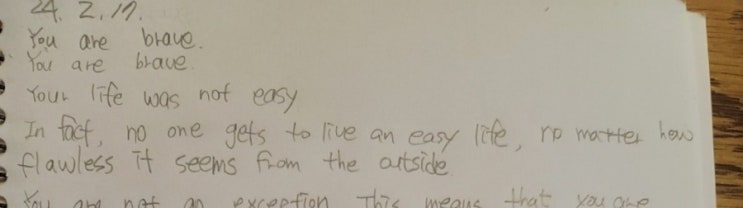 24. 2. 17.
You are brave.
You are brave.
Your life was not easy
In fact, no one gets to live an easy life, no matter how
flawless it seems from the outside
You are not an exception This means that you are